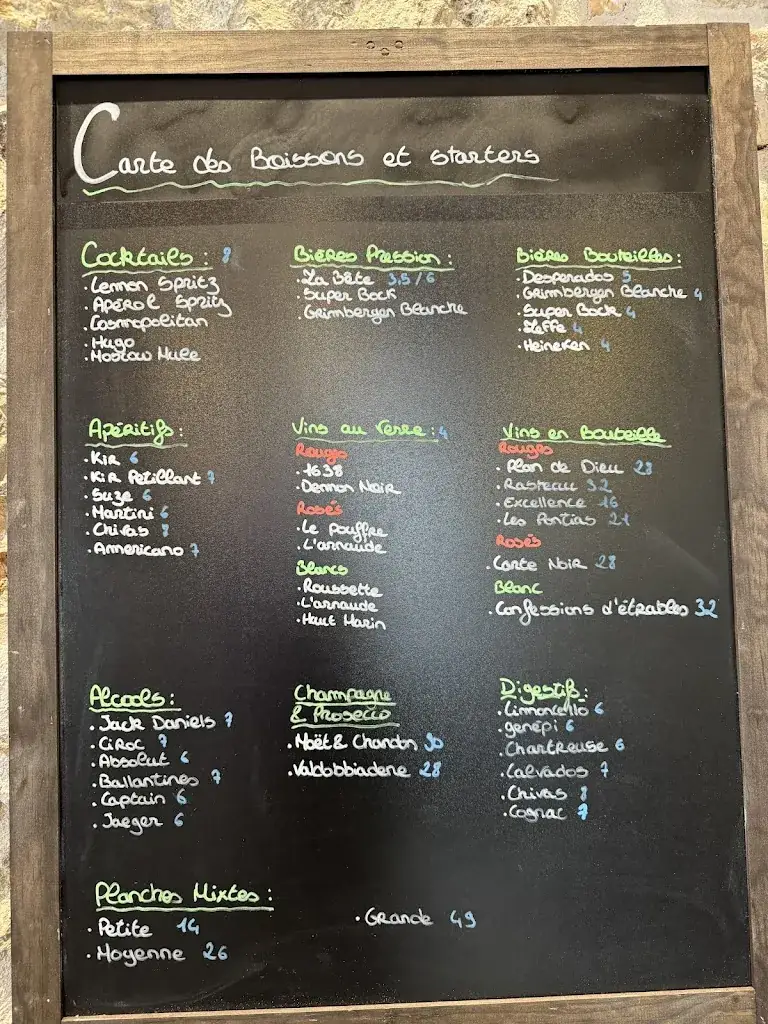 Carte des Boissons et starters
Cocktails : 8
· Lemon Spritz
· Apérol Spritz
· Cosmopolitan
· Hugo
· Moscow Mule
Bières Pression :
· La Bête 3,5 / 6
· Super Bock
· Grimbergen Blanche
Bières Bouteilles :
· Desperados 5
· Grimbergen Blanche 4
· Super Bock 4
· Leffe 4
· Heineken 4
Apéritifs :
· Kir 6
· Kir Petillant 7
· Suze 6
· Martini 6
· Chivas 8
· Americano 7
Vins au Verre : 4
Rouges
· 1638
· Demon Noir
Rosés
· Le pouffre
· L'arnaude
Blancs
· Roussette
· L'arnaude
· Haut Marin
Vins en Bouteille
Rouges
· Plan de Dieu 28
· Rasteau 32
· Excellence 16
· Les Pontias 21
Rosés
· Carte Noir 28
Blanc
· Confessions d'étrables 32
Alcools :
· Jack Daniels 7
· Ciroc 7
· Absolut 6
· Ballantines 7
· Captain 6
· Jaeger 6
Champagne
& Prosecco
· Moët & Chandon 90
· Valdobbiadene 28
Digestifs :
· Limoncello 6
· genépi 6
· Chartreuse 6
· Calvados 7
· Chivas 8
· Cognac 7
Planches Mixtes :
· Petite 14
· Moyenne 26
· Grande 49